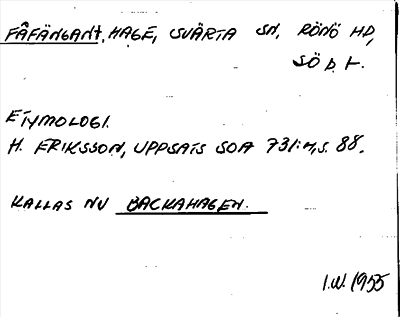 FÅFÄNGANT, HAGE, SVÄRTA SN, RÖNÖ HD,
SÖD.
ETYMOLOGI.
H. ERIKSSON, UPPSATS SOA 731:4, S. 88.
KALLAS NU BACKAHAGEN.
I.W. 1955